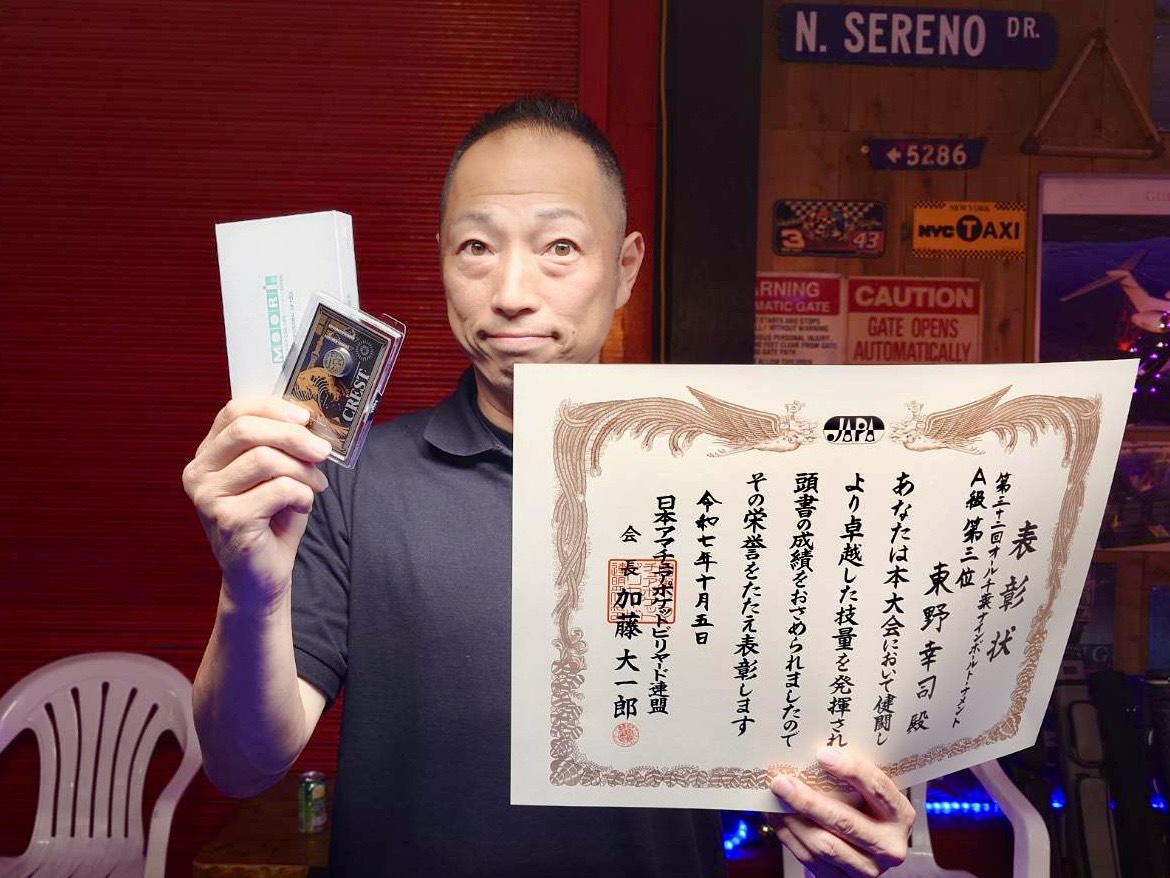 N. SERENO DR.
←5286
3 43
NEW YORK
NYC TAXI
WARNING
CAUTION
GATE OPENS
AUTOMATICALLY
MOORI
CREST
JAPA
表彰状
第三十二回オール千葉ナインボールトーナメント
A級第三位
東野幸司殿
あなたは本大会において健闘し
より卓越した技量を発揮され
頭書の成績をおさめられましたので
その栄誉をたたえ表彰します
令和七年十月五日
日本アマチュアポケットビリヤード連盟
会長 加藤大一郎